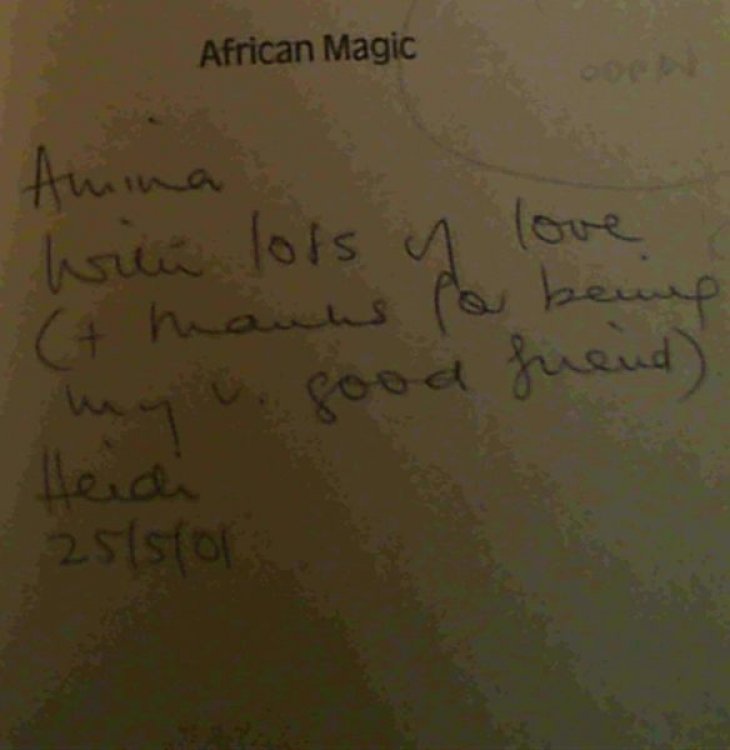 African Magic
Amina
with lots of love
(+ thanks for being
my v. good friend)
Heidi
25/5/01